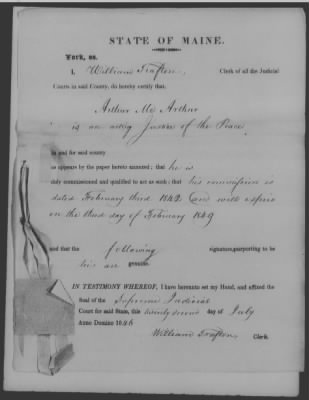 STATE OF MAINE.
York, ss.
I, William Trafton, Clerk of all the Judicial
Courts in said County, do hereby certify that,
Arthur Mc Arthur
is an acting Justice of the Peace
in and for said county
as appears by the paper hereto annexed; that he is
duly commissioned and qualified to act as such; that his commission is
dated February third 1842 and will expire
on the third day of February 1849
and that the following signature, purporting to be
his are genuine.
IN TESTIMONY WHEREOF, I have hereunto set my Hand, and affixed the
Seal of the Supreme Judicial
Court for said State, this twenty second day of July
Anno Domino 1846
William Trafton, Clerk.